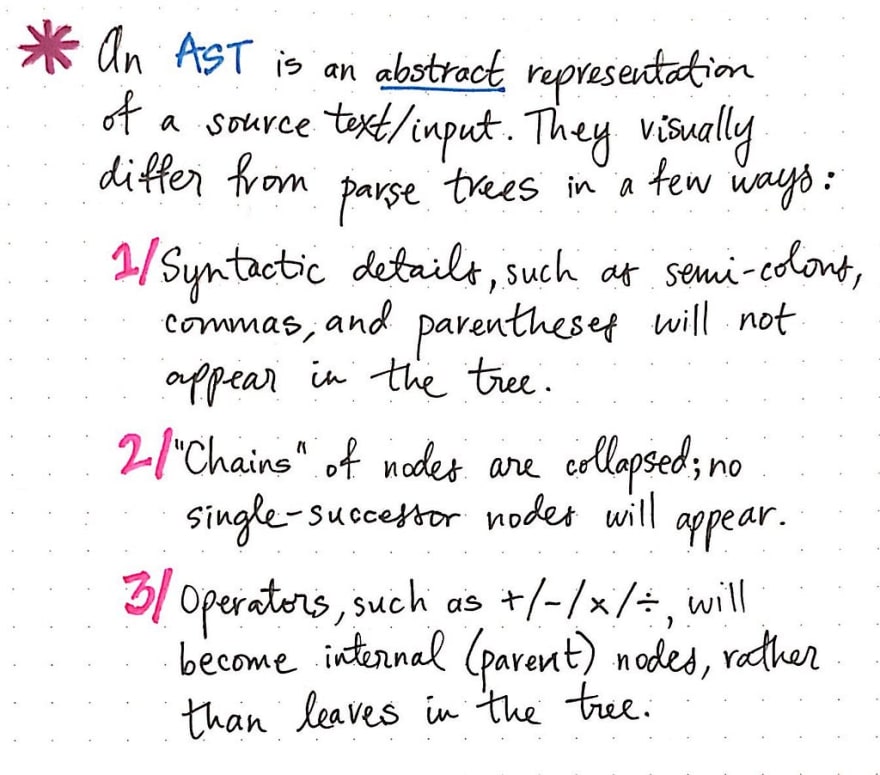 * An AST is an abstract representation
of a source text/input. They visually
differ from parse trees in a few ways:
1/ Syntactic details, such as semi-colons,
commas, and parentheses will not
appear in the tree.
2/ "Chains" of nodes are collapsed; no
single-successor nodes will appear.
3/ Operators, such as +/-/x/÷, will
become internal (parent) nodes, rather
than leaves in the tree.